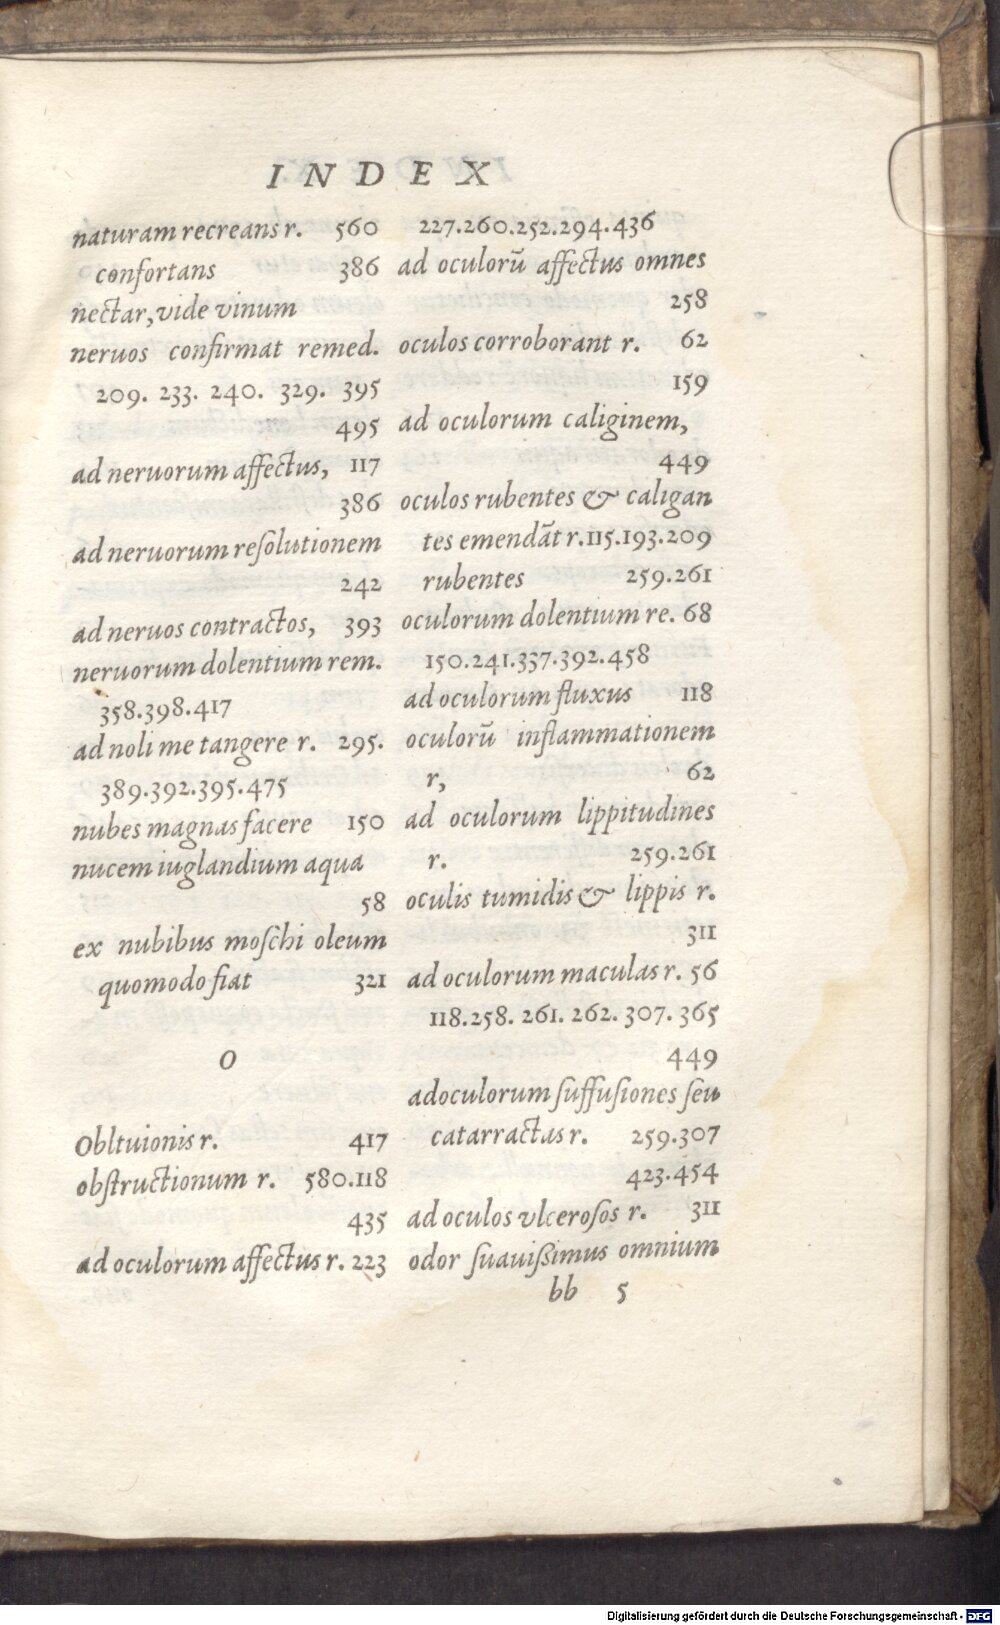 INDEX
naturam recreans r. 560
confortans 386
nectar, vide vinum
neruos confirmat remed.
209. 233. 240. 329. 395
495
ad neruorum affectus, 117
386
ad neruorum resolutionem
242
ad neruos contractos, 393
neruorum dolentium rem.
358.398.417
ad noli me tangere r. 295.
389.392.395.475
nubes magnas facere 150
nucem iuglandium aqua
58
ex nubibus moschi oleum
quomodo fiat 321
O
Obltuionis r. 417
obstructionum r. 580.118
435
ad oculorum affectus r. 223
227.260.252.294.436
ad oculorū affectus omnes
258
oculos corroborant r. 62
159
ad oculorum caliginem,
449
oculos rubentes & caligan
tes emendāt r.115.193.209
rubentes 259.261
oculorum dolentium re. 68
150.241.337.392.458
ad oculorum fluxus 118
oculorū inflammationem
r, 62
ad oculorum lippitudines
r. 259.261
oculis tumidis & lippis r.
311
ad oculorum maculas r. 56
118.258. 261. 262. 307. 365
449
adoculorum suffusiones seu
catarractas r. 259.307
423.454
ad oculos vlcerosos r. 311
odor suauißimus omnium
bb 5
Digitalisierung gefördert durch die Deutsche Forschungsgemeinschaft - DFG